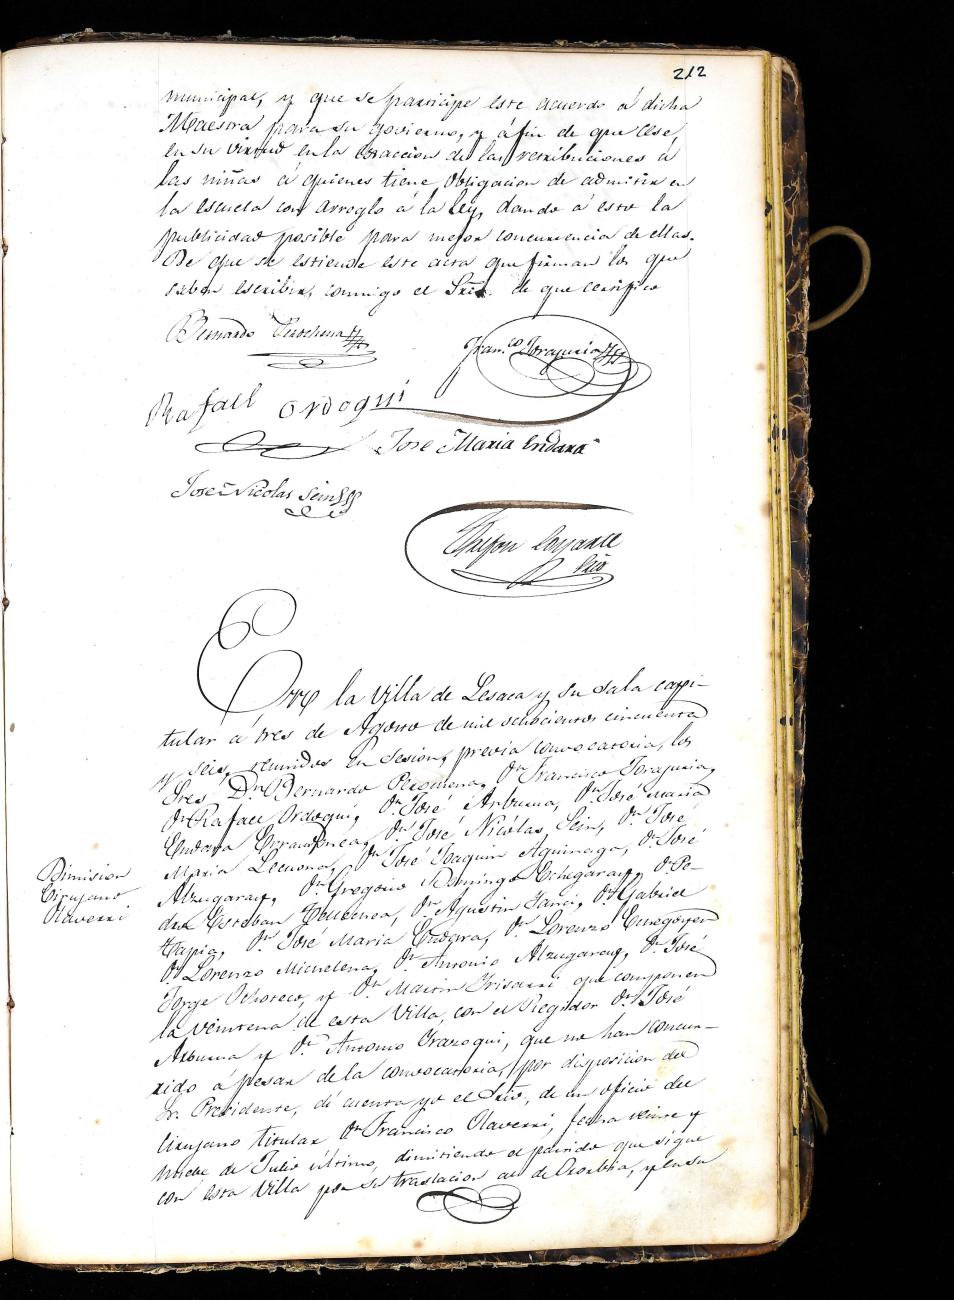 212
municipal, y que se participe este acuerdo á dicha
Maestra para su govierno, y á fin de que cese,
en su virtud en la esaccion de las retribuciones á
las niñas á quienes tiene obligacion de admitir en
la escuela con arreglo á la ley, dando á esto la
publicidad posible para mejor concurrencia de ellas.
De que se estiende este acta que firman los que
saben escribir, conmigo el Srio. de que certifico
Bernardo
Fran.co Torajuria
Rafael Ordoqui
Jose Maria Endara
José Nicolas Sein
Srio
En la Villa de Lesaca y su sala capi-
tular á tres de Agosto de mil ochocientos cincuenta
y seis, reunidos en sesion, previa convocatoria, los
Sres Dn Bernardo Dn Francisco Torajuria,
Dn Rafael Ordoqui, Dn José Arburua, Dn José Maria
Endara Dn José Nicolás Sein, Dn José
Maria Lecuona, Dn José Joaquin Aguinaga, Dn José
Alzugaray, Dn Gregorio Domingo Echegaray, Dn Pe-
dro Esteban Dn Agustin Dn Gabriel
Tapia, Dn José Maria Endara, Dn Lorenzo Echegoyen
Dn Lorenzo Michelena, Dn Antonio Alzugaray, Dn José
Jorge Ochoteco, y Dn Martin Irisarri que componen
la veintena de esta Villa, con el Regidor Dn José
Arburua y Dn Antonio que no han concur-
rido á pesar de la convocatoria, por disposicion del
Sr. Presidente, dí cuenta yo el Srio, de un oficio del
Cirujano titular Dn Francisco Olaverri, fecha veinte y
nueve de Julio último, dimitiendo el partido que sigue
con esta Villa por su traslacion al de y en su
Dimision
Cirujano
Olaverri